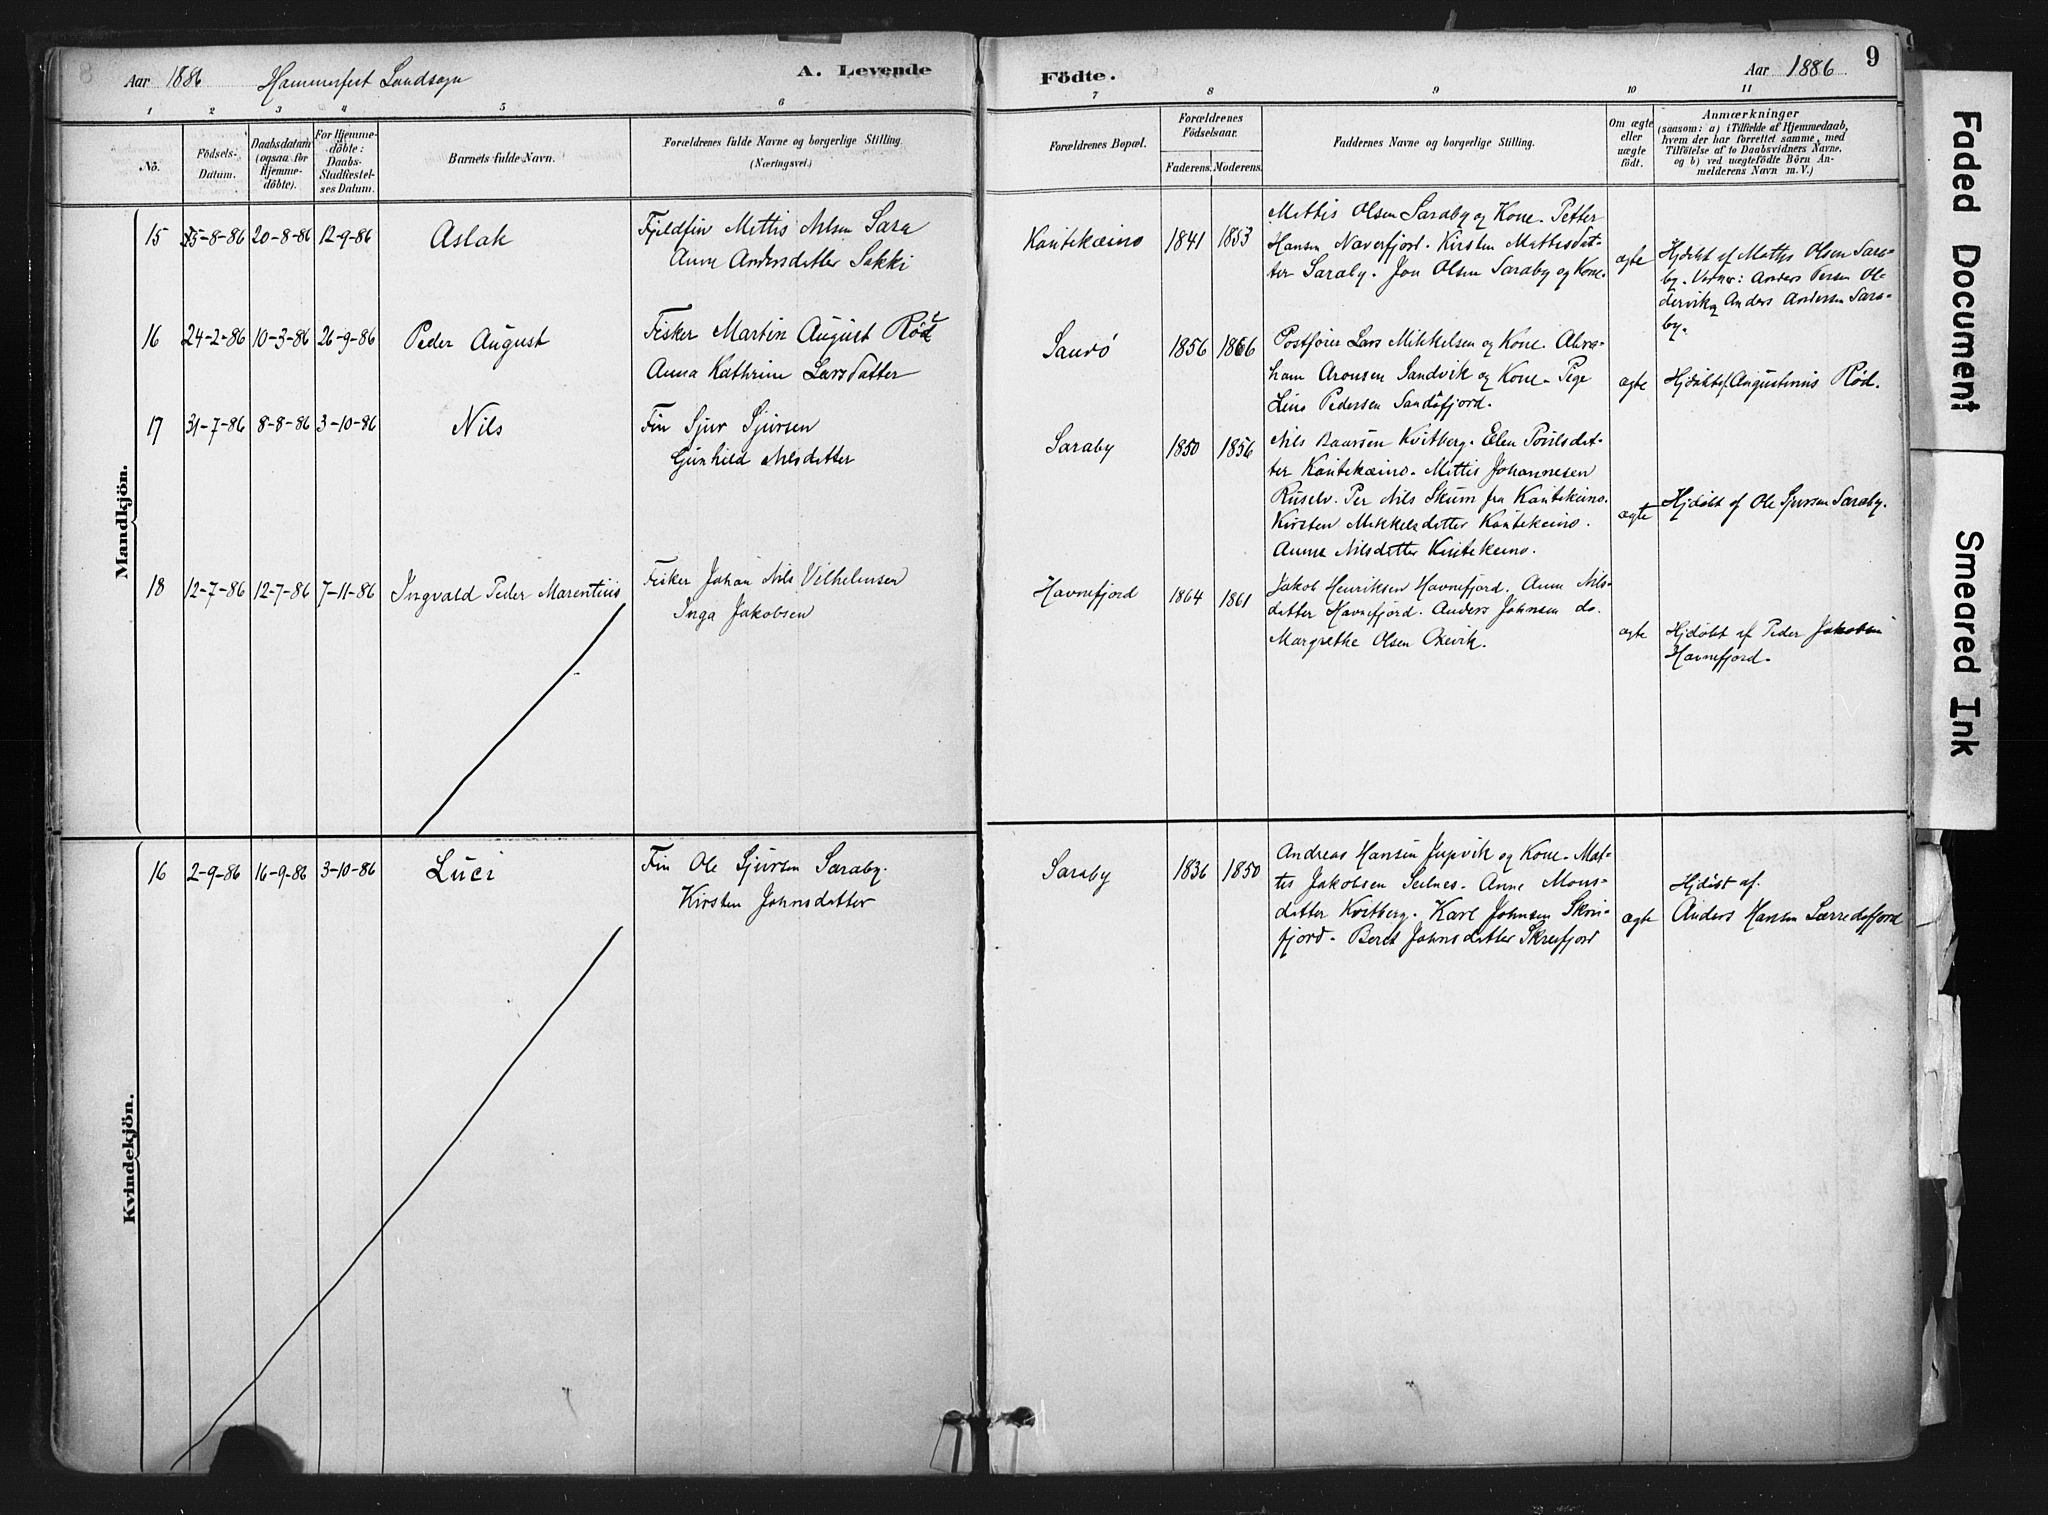 8
Aar 1886 Hammerfest Landsogn
A. Levende
Födte.
Aar 1886
9
1 2 3 4 5 6 7 8 9 10 11
No.
Födsels-
Datum.
Daabsdatum
(ogsaa for
Hjemme-
döbte).
For Hjemme-
döbte:
Daabs-
Stadfæstel-
ses Datum.
Barnets fulde Navn.
Forældrenes fulde Navne og borgerlige Stilling
(Næringsvei.)
Forældrenes Bopæl.
Forældrenes
Födselsaar.
Faderens. Moderens.
Faddernes Navne og borgerlige Stilling.
Om ægte
eller
uægte
födt.
Anmærkninger
(saasom: a) i Tilfælde af Hjemmedaab,
hvem der har forrettet samme, med
Tilföielse af to Daabsvidners Navne,
og b) ved uegtefödte Börn An-
melderens Navn m. V.)
Mandkjön.
15 15-8-86 20-8-86 12-9-86 Aslak
Fjeldfin Mettis Nilsen Sara
Anne Andersdatter Sakki
Kautekæino 1841 1853
Mettis Olsen Saraby og Kone. Petter
Hansen Naverfjord. Kirsten Mattisdat-
ter Saraby. Jon Olsen Saraby og Kone.
ægte
Hjdöbt af Mattis Olsen Sara-
by. Anders Persen Ol-
dervik og Anders Andersen Sara-
by.
16 24-2-86 10-3-86 26-9-86 Peder August
Fisker Martin August Röd
Anna Kathrine Larsdatter
Sandö 1856 1866
Postförer Lars Mikkelsen og Kone. Abra-
ham Aronsen Sandvik og Kone. Pige
Lina Pedersen Sandöfjord.
ægte Hjdöbt af Augustinius Röd.
17 31-7-86 8-8-86 3-10-86 Nils
Fin Sjur Sjursen
Gunhild Nilsdatter
Saraby 1850 1856
Nils Baarsen Kvitberg. Elen Poulsdat-
ter Kautekæino. Mittis Johannesen
Ruselv. Per Nils Skum fra Kautekeino.
Kirsten Mikkelsdatter Kautekeino.
Anne Nilsdatter Kautekeino.
ægte Hjdöbt af Ole Sjursen Saraby.
18 12-7-86 12-7-86 7-11-86 Ingvald Peder Marentius
Fisker Johan Nils Vilhelmsen
Inga Jakobsen
Havnefjord 1864 1861
Jakob Henriksen Havnefjord. Anne Nils-
datter Havnefjord. Anders Johnsen do.
Margrethe Olsen Oxevik.
ægte Hjdöbt af Peder Jakobsen
Havnefjord.
Kvindekjön.
16 2-9-86 16-9-86 3-10-86 Luci
Fin Ole Sjursen Saraby.
Kirsten Johnsdatter
Saraby 1836 1850
Andreas Hansen Jupvik og Kone. Mat-
tis Jakobsen Seilnes. Anne Mons-
datter Kvitberg. Karl Johnsen Skrei-
fjord. Beret Johnsdatter Skreifjord
ægte
Hjdöbt af.
Anders Hansen Særredsfjord
Faded Document
Smeared Ink